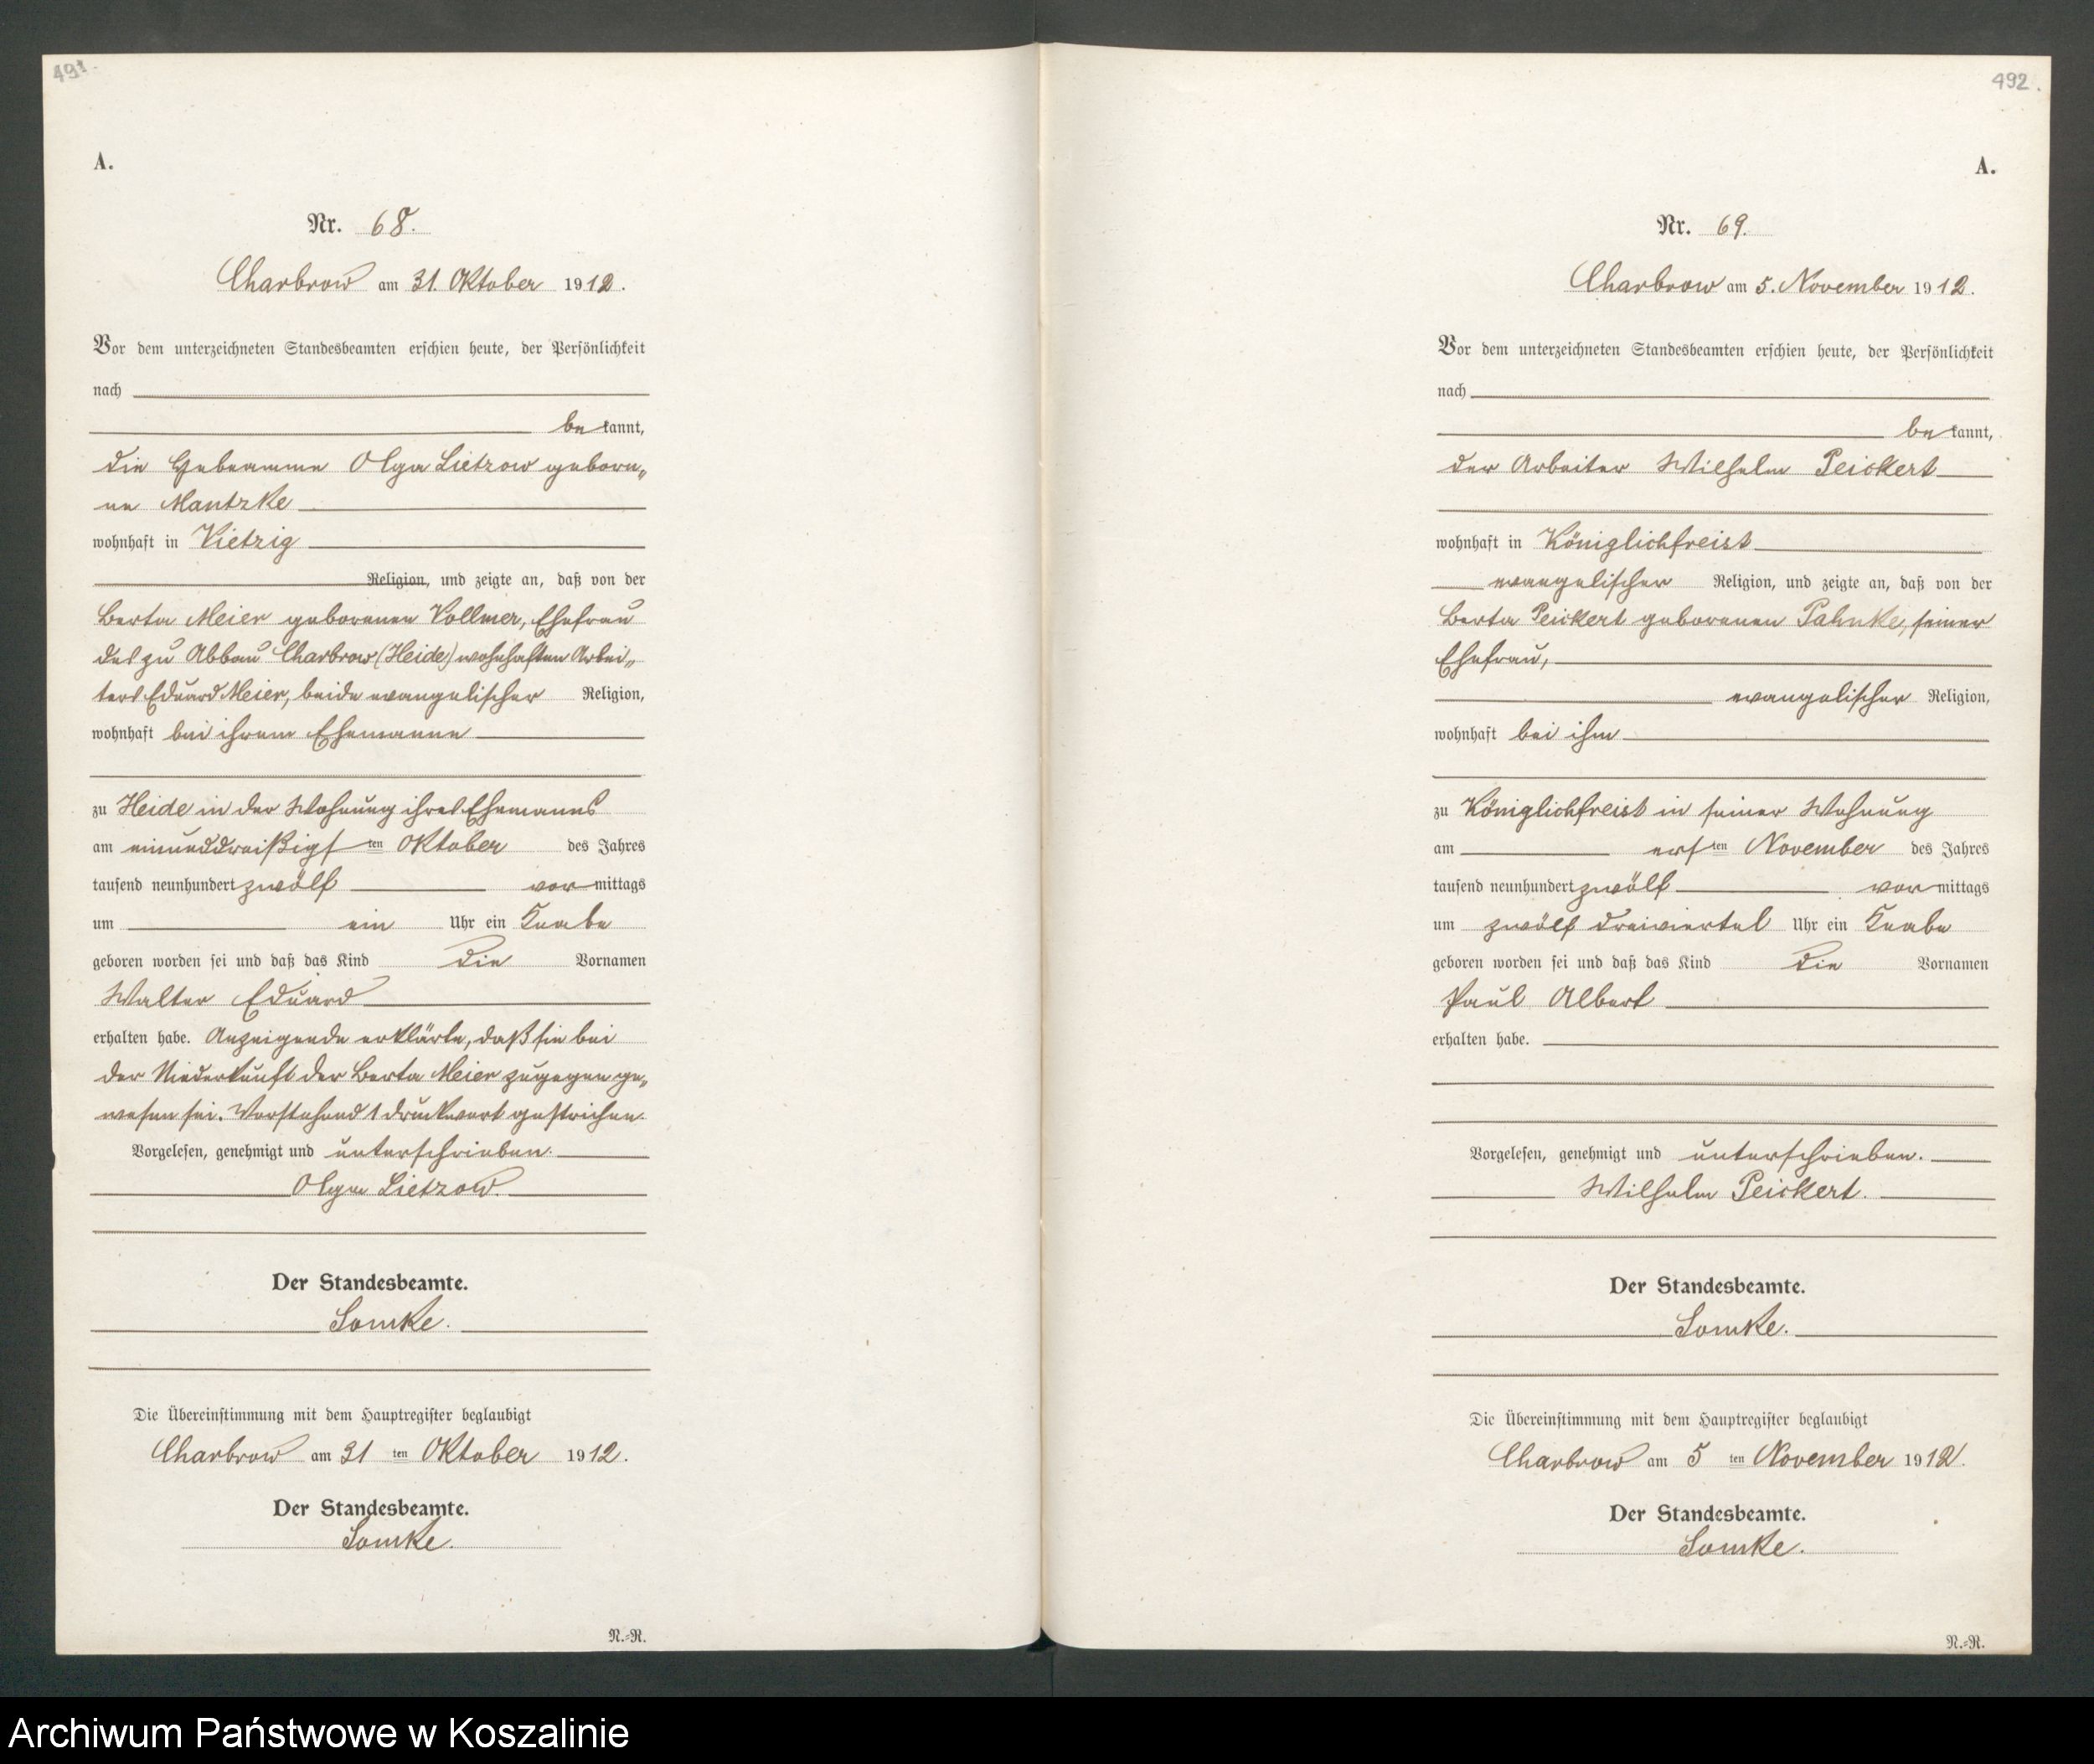 491.
A.
Nr. 68.
Charbrow am 31. Oktober 1912.
Vor dem unterzeichneten Standesbeamten erschien heute, der Persönlichkeit
nach
be kannt,
die Hebeamme Olga Lietzow gebore„
ne Mantzke
wohnhaft in Vietzig
Religion, und zeigte an, daß von der
Berta Meier geborenen Vollmer, Ehefrau
des zu Abbau Charbrow (Heide) wohnhaften Arbei„
ters Eduard Meier, beide evangelischer Religion,
wohnhaft bei ihrem Ehemanne
zu Heide in der Wohnung ihres Ehemanns
am einunddreißigs ten Oktober des Jahres
tausend neunhundert zwölf vor mittags
um ein Uhr ein Knabe
geboren worden sei und daß das Kind die Vornamen
Walter Eduard
erhalten habe. Anzeigende erklärte, daß sie bei
der Niederkunft der Berta Meier zugegen ge„
wesen sei. Vorstehend 1 Druckwort gestrichen.
Vorgelesen, genehmigt und unterschrieben.
Olga Lietzow.
Der Standesbeamte.
Lomke.
Die Übereinstimmung mit dem Hauptregister beglaubigt
Charbrow am 31 ten Oktober 1912.
Der Standesbeamte.
Lomke.
N.=R.
492.
A.
Nr. 69.
Charbrow am 5. November 1912.
Vor dem unterzeichneten Standesbeamten erschien heute, der Persönlichkeit
nach
be kannt,
der Arbeiter Wilhelm Peickert
wohnhaft in Königlichfreist
evangelischer Religion, und zeigte an, daß von der
Berta Peickert geborenen Pahnke, seiner
Ehefrau,
evangelischer Religion,
wohnhaft bei ihm
zu Königlichfreist in seiner Wohnung
am ers ten November des Jahres
tausend neunhundert zwölf vor mittags
um zwölf dreiviertel Uhr ein Knabe
geboren worden sei und daß das Kind die Vornamen
Paul Albert
erhalten habe.
Vorgelesen, genehmigt und unterschrieben.
Wilhelm Peickert.
Der Standesbeamte.
Lomke.
Die Übereinstimmung mit dem Hauptregister beglaubigt
Charbrow am 5 ten November 1912.
Der Standesbeamte.
Lomke.
N.=R.
Archiwum Państwowe w Koszalinie